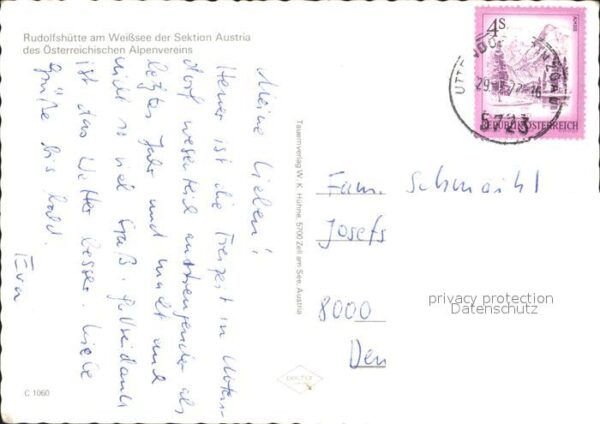 Rudolfshütte am Weißsee der Sektion Austria
des Österreichischen Alpenvereins
Meine Lieben!
Heuer ist die Freizeit in Utten-
dorf wesentlich anstrengender als
letztes Jahr und macht auch
nicht so viel Spaß. Gottseidank
ist das Wetter besser. Liebe
Grüße bis bald.
Eva
Tauernverlag W. K. Hühne, 5700 Zell am See, Austria
C 1060
4S
REPUBLIK ÖSTERREICH
5723
Fam. Schmaihl
Josefs
8000
privacy protection
Datenschutz